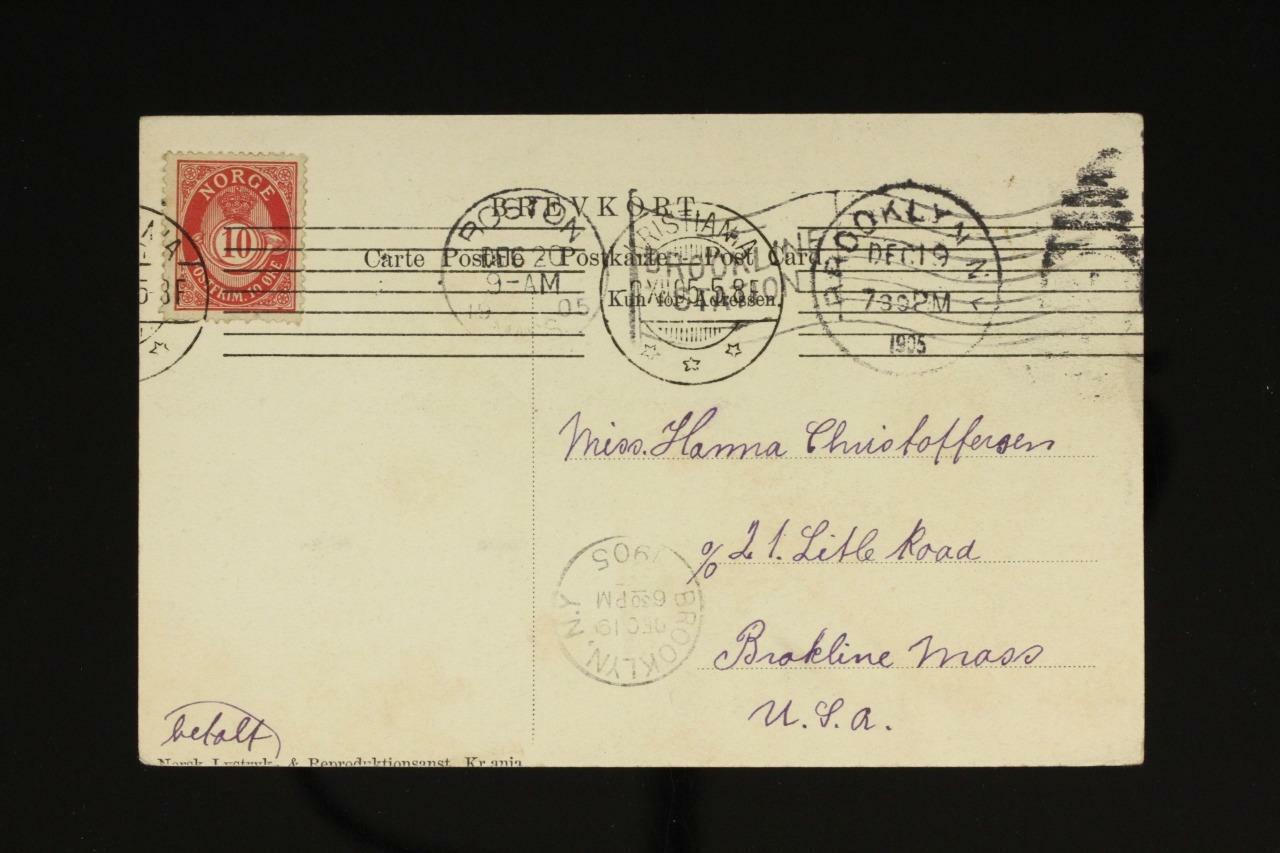 NORGE
10
POSTFRIM. 10 ØRE
BREVKORT
Carte Postale - Postkarte - Post Card.
Kun for Adressen.
BOSTON
DEC 20
9-AM
05
KRISTIANIA
XII 05 5-8 F
BROOKLINE
STATION
BROOKLYN N.Y
DEC 19
730 PM
1905
Miss. Hanna Christoffersen
% 21. Litle Road
Brokline Mass
U.S.A.
BROOKLYN, N.Y
DEC 19
630 PM
1905
betalt
Norsk Lystryk- & Reproduktionsanst. Kr.ania